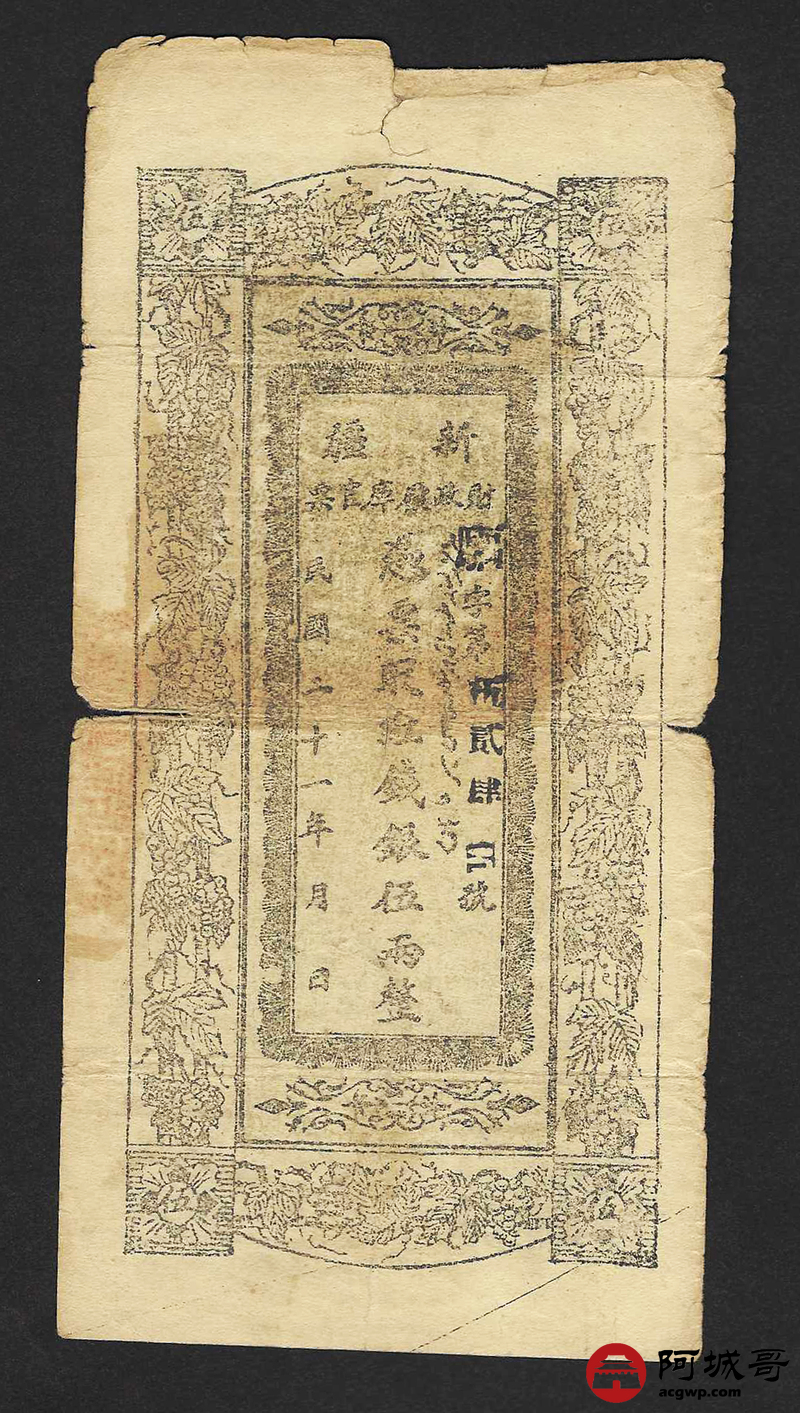 伍
伍
新疆
財政廳庫官票
字第
貳肆
號
憑票取紅錢銀伍兩整
民國二十一年 月 日
伍
伍
阿城哥
acgwp.com